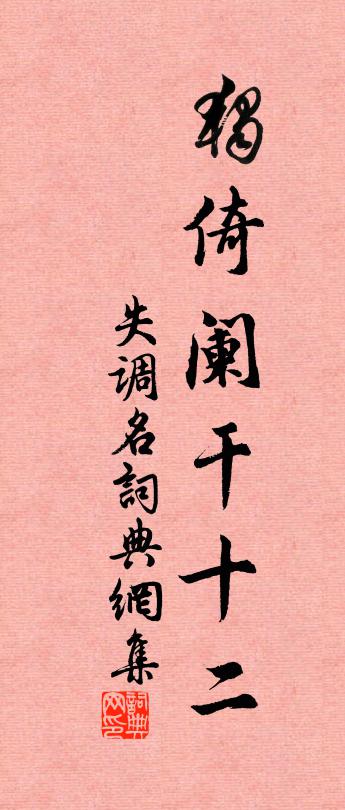 獨倚闌干十二
失調名詞典網集
詞典网印